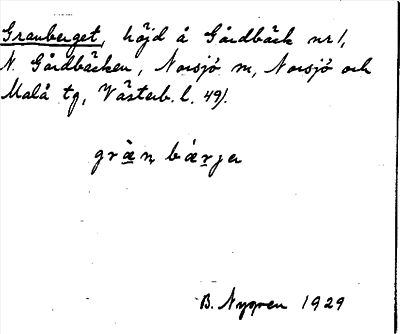 Granberget, höjd å Gårdbäck nr 1,
N. Gårdbäcken, Norsjö sn, Norsjö och
Malå tg, Västerb. l. 49).
grȧ̈n bȧ̈rjen
B. Nygren 1929